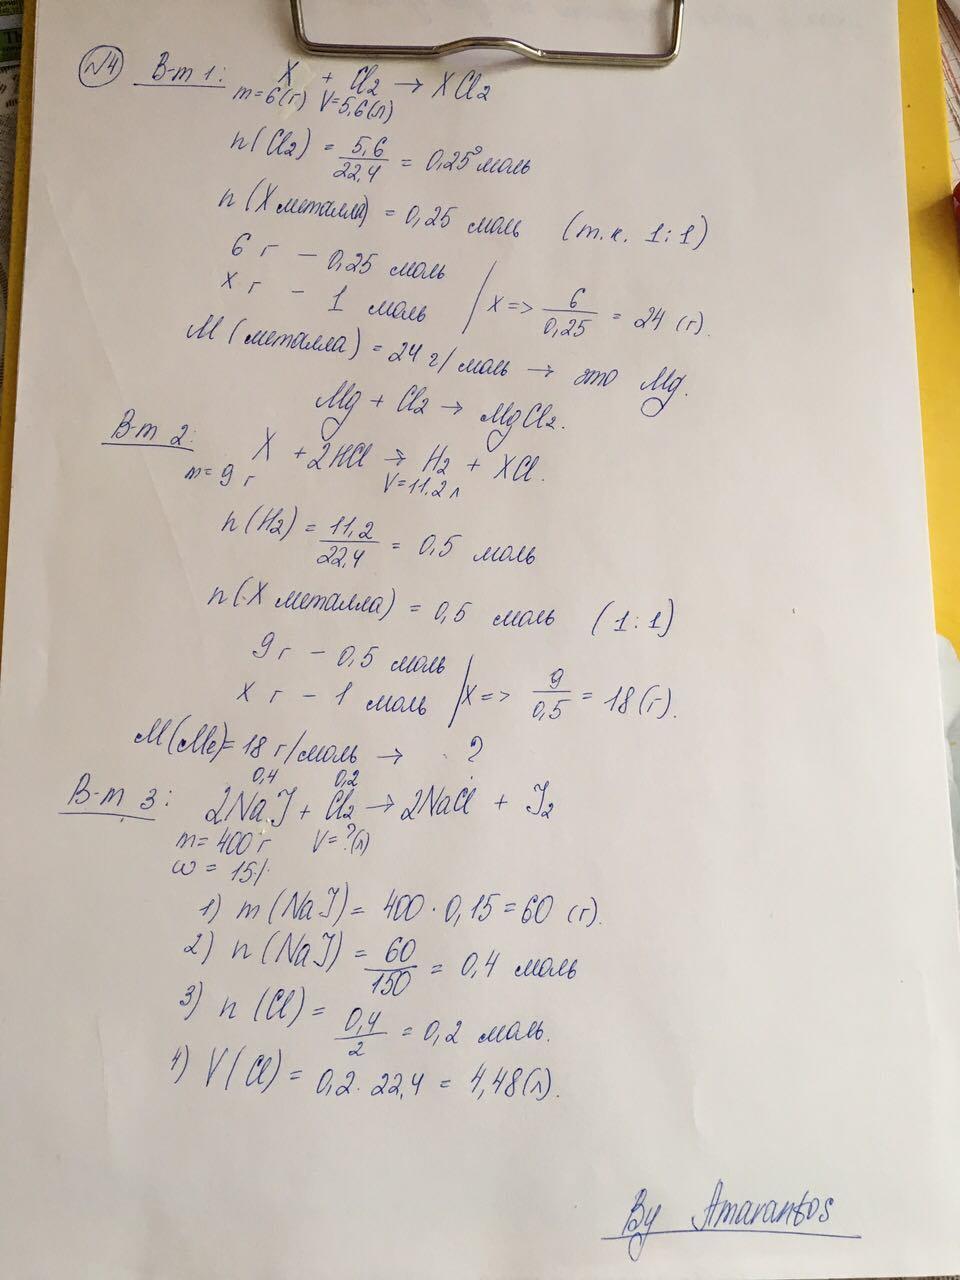 №4 В-т 1: X + Cl2 → XCl2
m=6(г) V=5,6(л)
n(Cl2) = 5,6/22,4 = 0,25 моль
n(X металла) = 0,25 моль (т.к. 1:1)
6 г – 0,25 моль
x г – 1 моль | x => 6/0,25 = 24 (г).
M(металла) = 24 г/моль → это Mg.
Mg + Cl2 → MgCl2.
В-т 2: X + 2HCl → H2 + XCl.
m= 9 г V=11,2 л
n(H2) = 11,2/22,4 = 0,5 моль
n(X металла) = 0,5 моль (1:1)
9 г – 0,5 моль
x г – 1 моль | x => 9/0,5 = 18 (г).
M(Me)= 18 г/моль → ?
0,4 0,2
В-т 3: 2NaJ + Cl2 → 2NaCl + J2
m= 400 г V=?(л)
w = 15%
1) m(NaJ)= 400 · 0,15 = 60 (г).
2) n(NaJ) = 60/150 = 0,4 моль
3) n(Cl) = 0,4/2 = 0,2 моль.
4) V(Cl) = 0,2 · 22,4 = 4,48(л).
By Amarantos